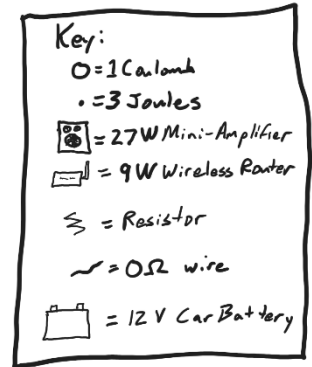 Key:
O=1 Coulomb
• =3 Joules
=27W Mini-Amplifier
= 9W Wireless Router
= Resistor
=0Ω wire
= 12 V Car Battery